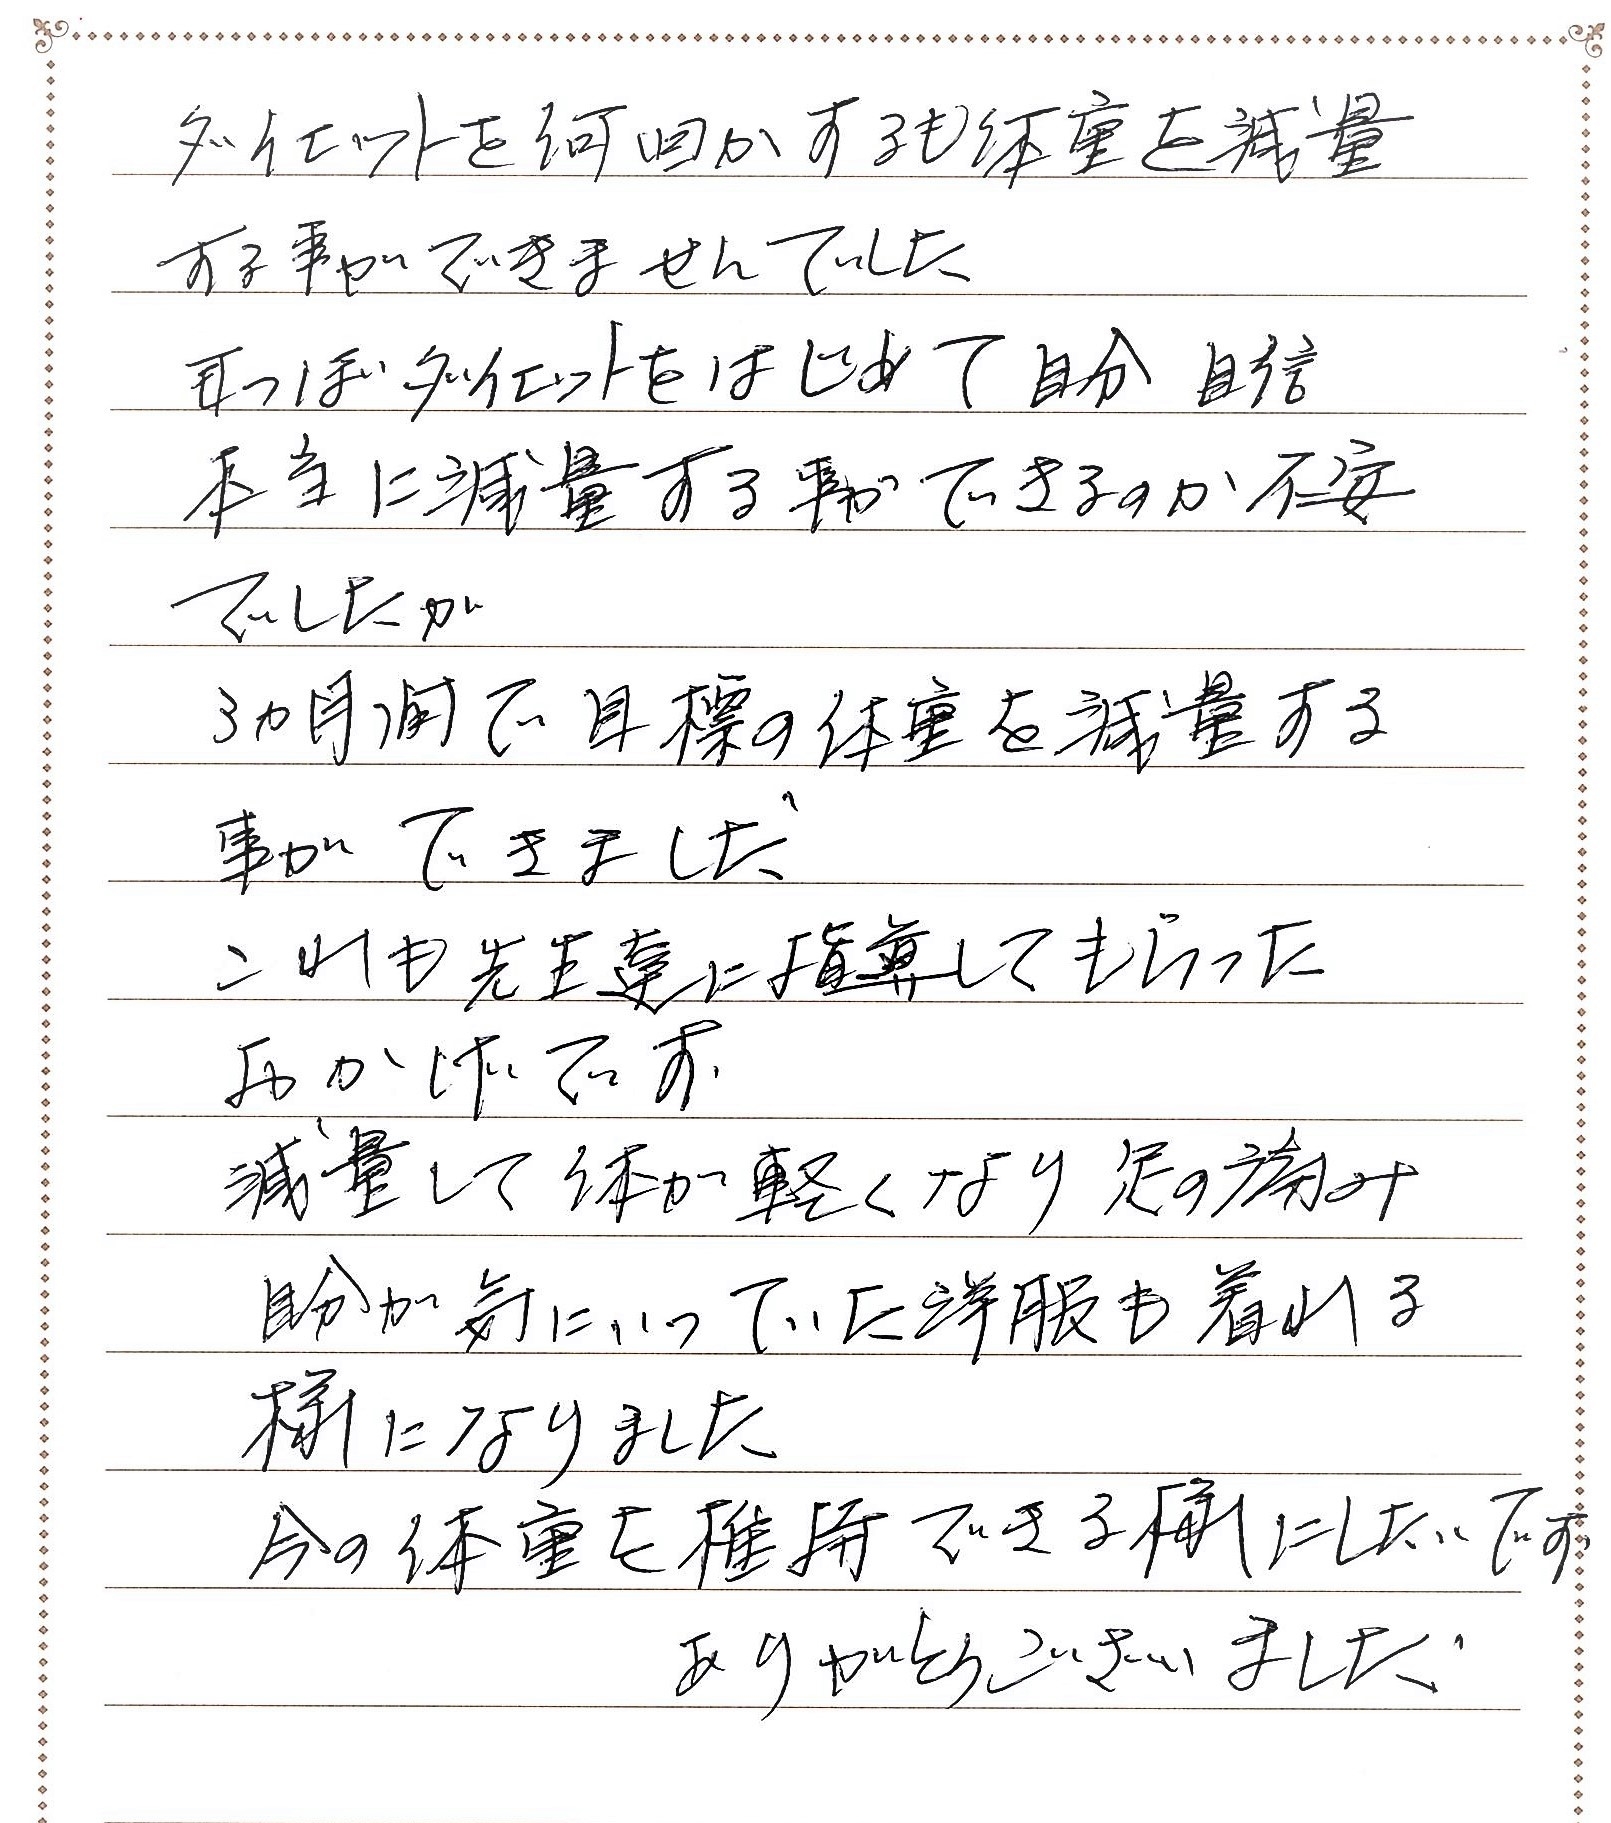 ダイエットを何回かするも体重を減量
する事ができませんでした
耳つぼダイエットをはじめて自分 自信
本当に減量する事ができるのか不安
でしたが
3カ月間で目標の体重を減量する
事ができました
これも先生達に指導してもらった
おかげです
減量して体が軽くなり足の痛み
自分が気にいっていた洋服も着れる
様になりました
今の体重を維持できる様にしたいです
ありがとうございました